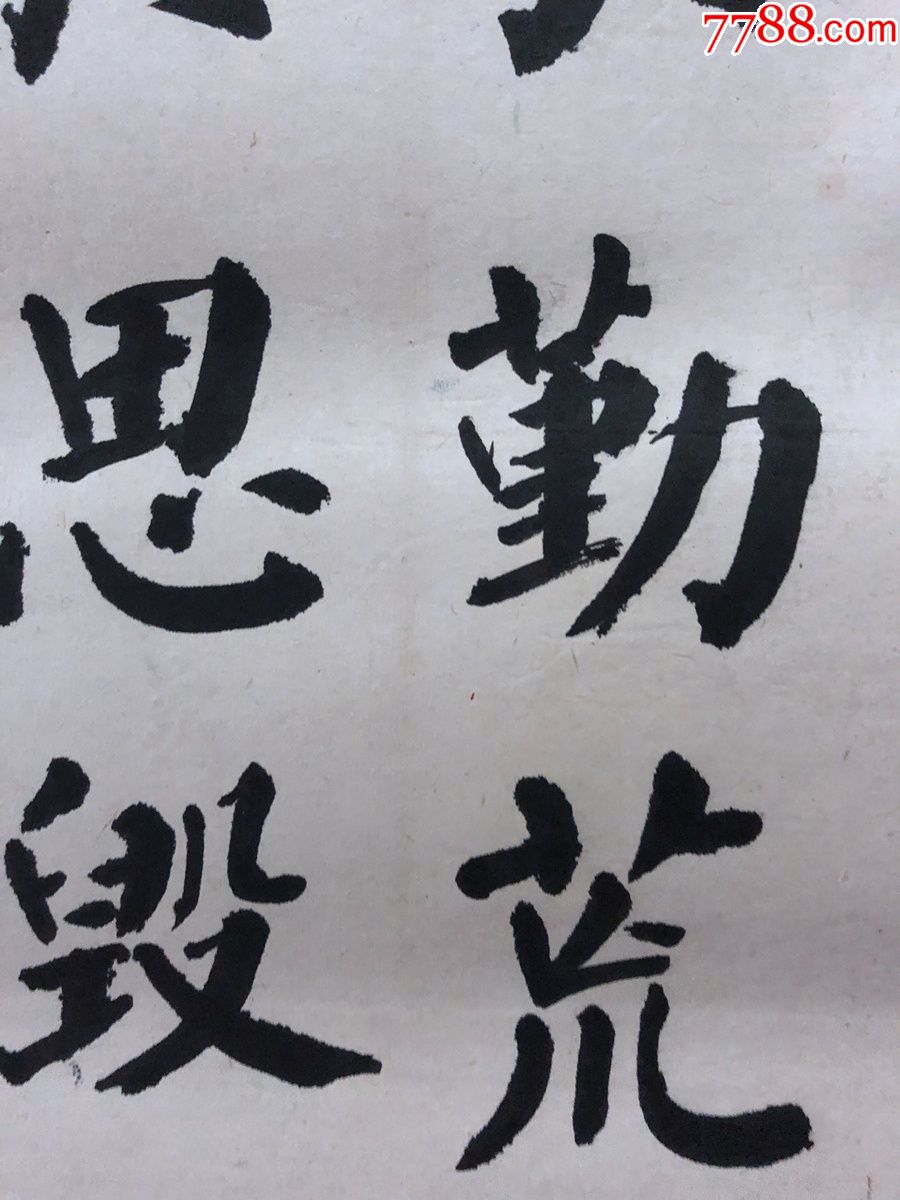 7788.com
勤荒
思毁